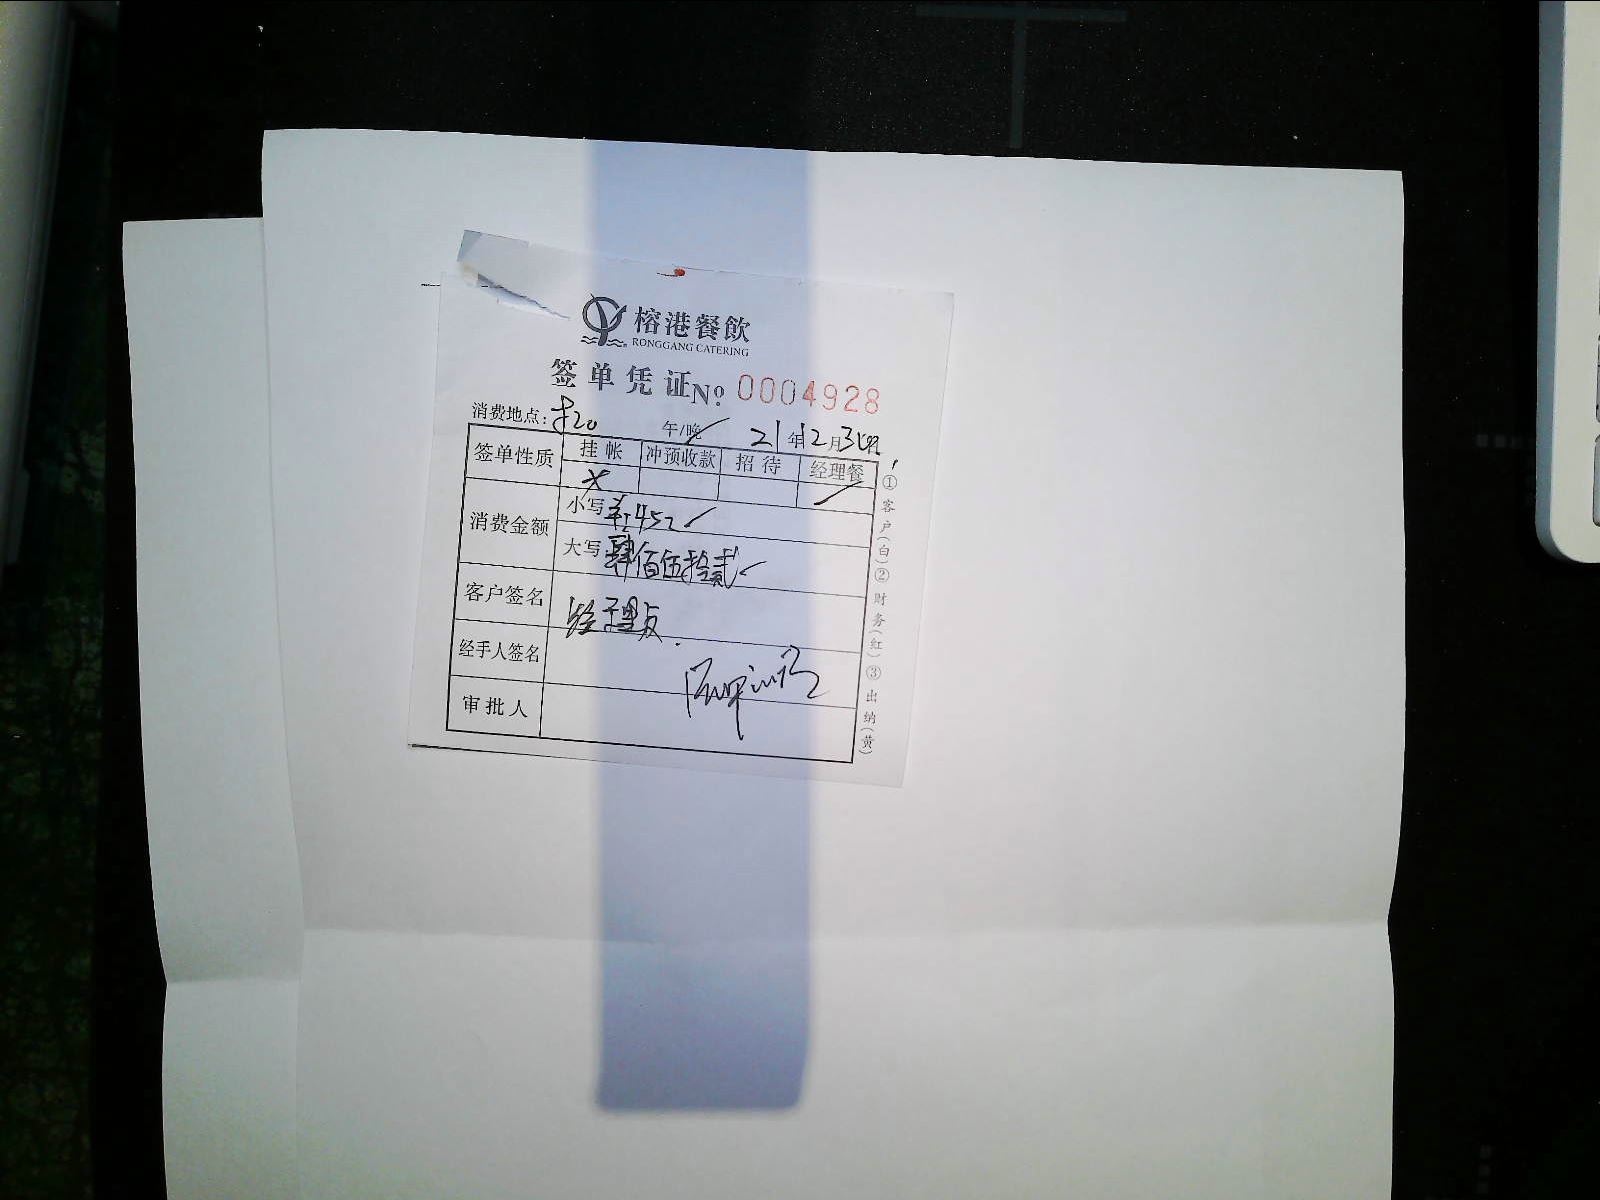 榕港餐飲
RONGGANG CATERING
签单凭证 No. 0004928
消费地点: 午/晚 21年12月3
签单性质 挂帐 冲预收款 招待 经理餐
消费金额 小写 452
大写 肆佰伍拾贰
客户签名 经理
经手人签名
审批人
①客户(白)②财务(红)③出纳(黄)